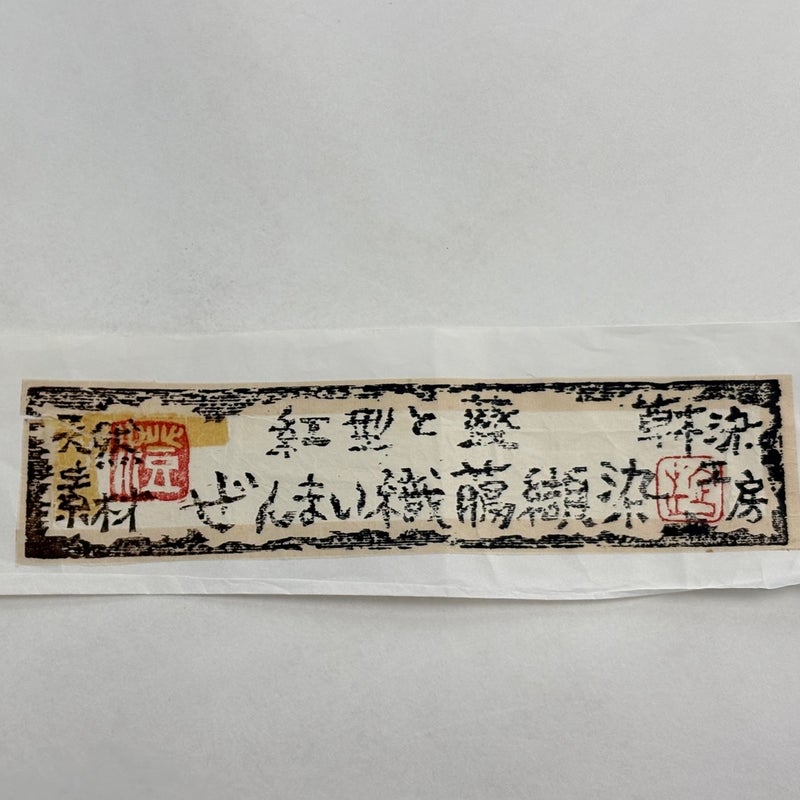 天然
素材
紅型と藍
ぜんまい織臈纈染
染
工房